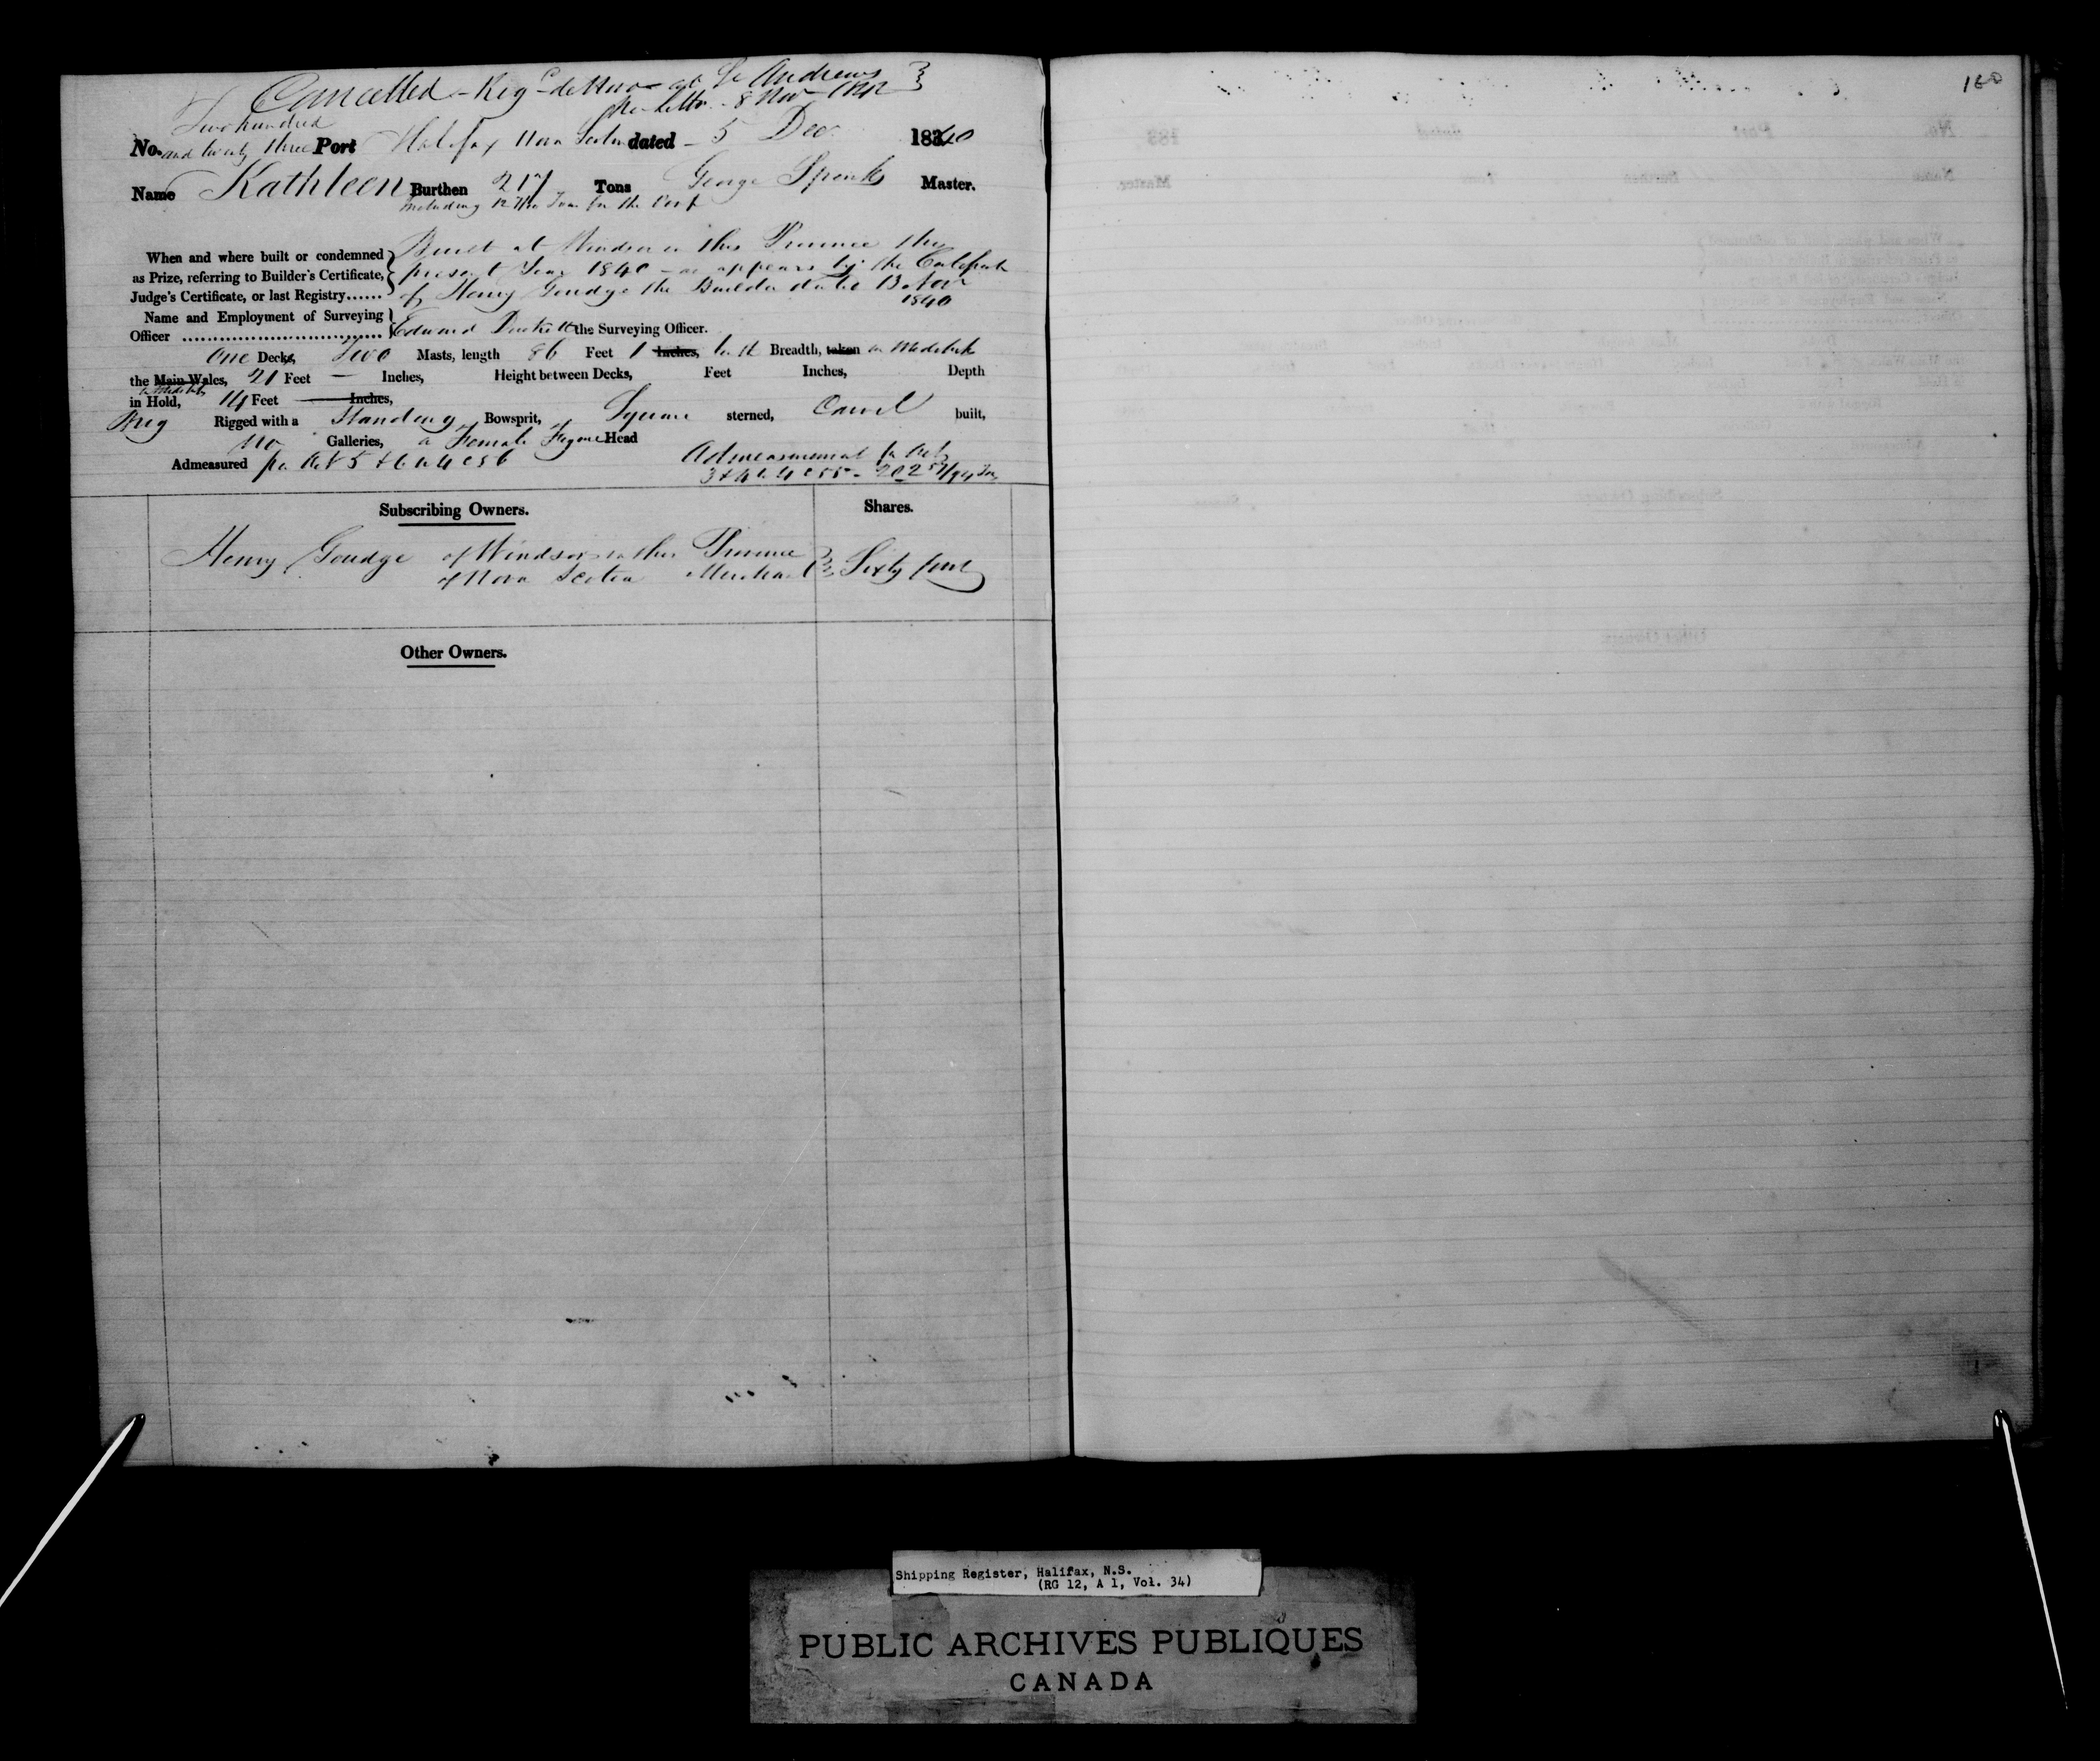 Cancelled - Reg de novo at St Andrews
per letter 8 Nov 1842
160
Two hundred
No. and twenty three Port Halifax Nova Scotia dated - 5 Dec 1840
Name Kathleen Burthen 217 Tons George Spenk Master.
including 12 7/10 Tons for the Poop
Built at Windsor in this Province the
When and where built or condemned
as Prize, referring to Builder's Certificate, present Year 1840 - as appears by the Certificate
Judge's Certificate, or last Registry...... of Henry Goudge the Builder dated 13 Nov
1840
Name and Employment of Surveying
Officer ................................ Edward the Surveying Officer.
One Decks, Two Masts, length 86 Feet 1 Inches, tenth Breadth, taken in Midships
the Main Wales, 21 Feet — Inches, Height between Decks, Feet Inches, Depth
in Midships
in Hold, 14 Feet Inches,
Brig Rigged with a Standing Bowsprit, Square sterned, Carvel built,
no Galleries, a Female Figure Head
Admeasured per Act 5 & 6 W 4 C 56 Admeasurement per Act
3 & 4 W 4 C 55 - 202 57/94 Tons
Subscribing Owners. Shares.
Henry Goudge of Windsor in this Province
of Nova Scotia Merchant Sixty four
Other Owners.
Shipping Register, Halifax, N.S.
(RG 12, A 1, Vol. 34)
PUBLIC ARCHIVES PUBLIQUES
CANADA